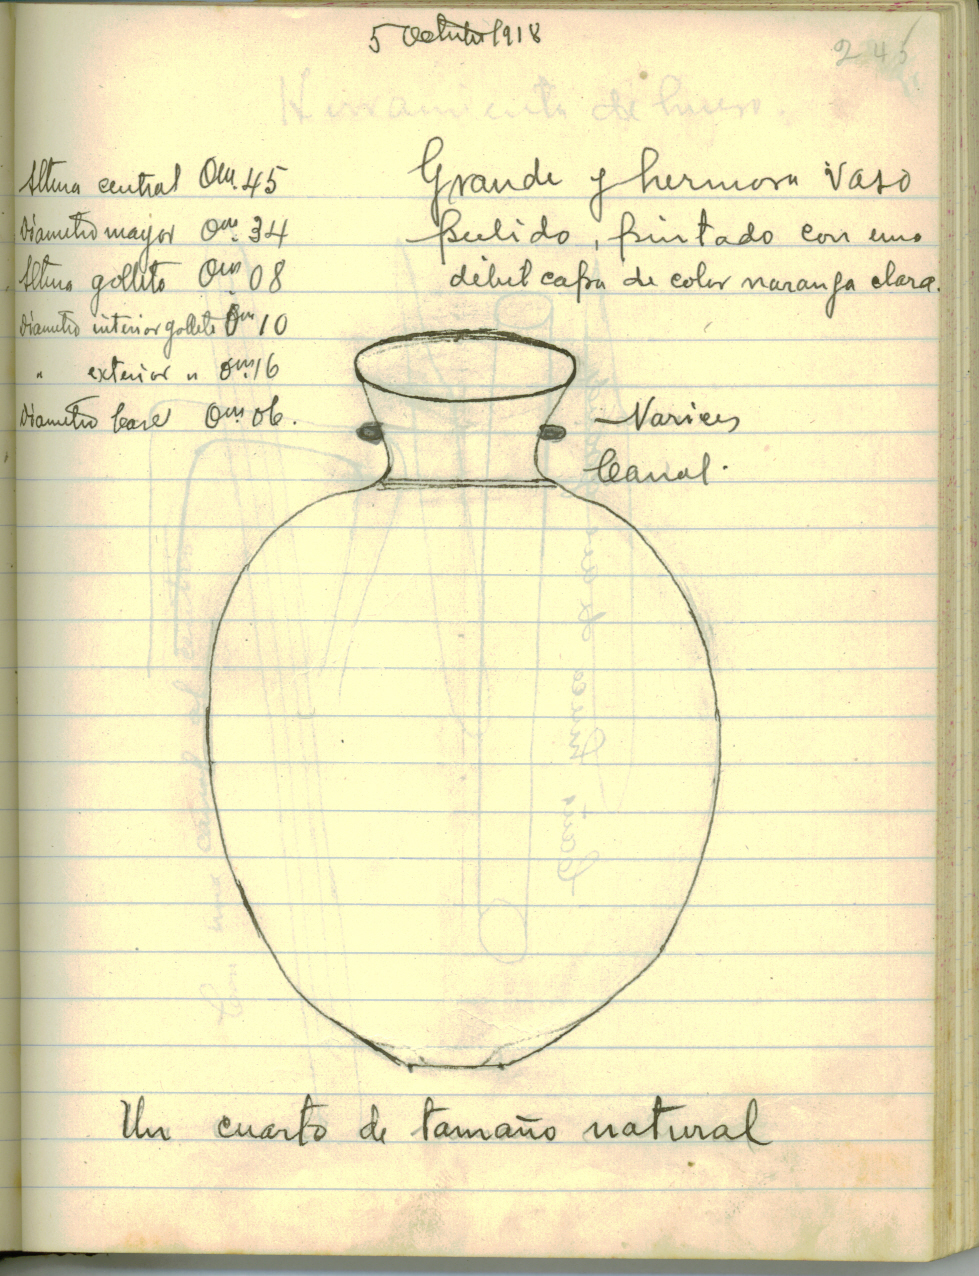 5 Octubre 1918
245
Herramienta de hueso.
Altura central 0m.45
Diametro mayor 0m.34
Altura gollete 0m 08
Diametro interior gollete 0m 10
" exterior " 0m.16
Diametro base 0m 06.
Grande y hermoso vaso
pulido, pintado con una
débil capa de color naranja claro.
Narices
Canal.
Un cuarto de tamaño natural